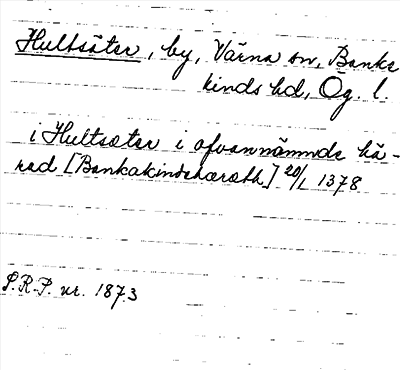 Hultsäter, by, Värna sn, Banke
kinds hd, Ög. l.
i Hultsæter i ofvannämnde hä-
rad [Bankakindshæræth] 20/1 1378
S.R.P. nr. 1873